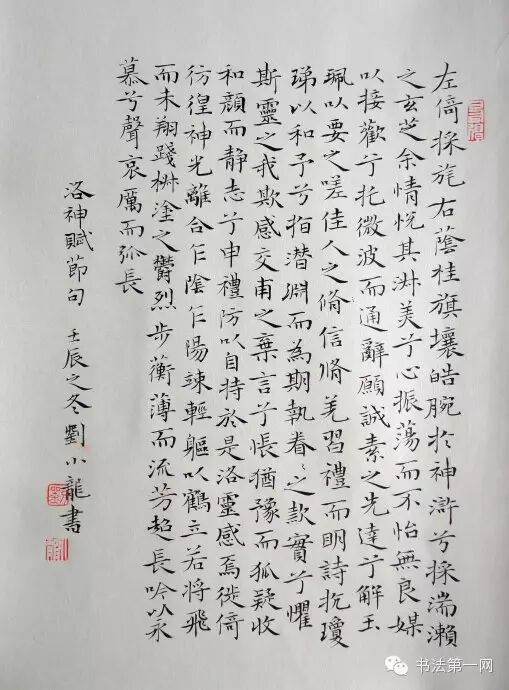 左倚採旄右蔭桂旗壤皓腕於神滸兮採湍瀨
之玄芝余情悅其淑美兮心振蕩而不怡無良媒
以接歡兮托微波而通辭願誠素之先達兮解玉
珮以要之嗟佳人之脩信脩羌習禮而明詩抗瓊
珶以和予兮指潛淵而為期執眷〻之款實兮懼
斯靈之我欺感交甫之棄言兮悵猶豫而狐疑收
和顏而静志兮申禮防以自持於是洛靈感焉徙倚
彷徨神光離合乍陰乍陽竦輕軀以鶴立若將飛
而未翔踐椒塗之鬱烈步蘅薄而流芳超長吟以永
慕兮聲哀厲而弥長
洛神賦節句 壬辰之冬劉小龍書
书法第一网